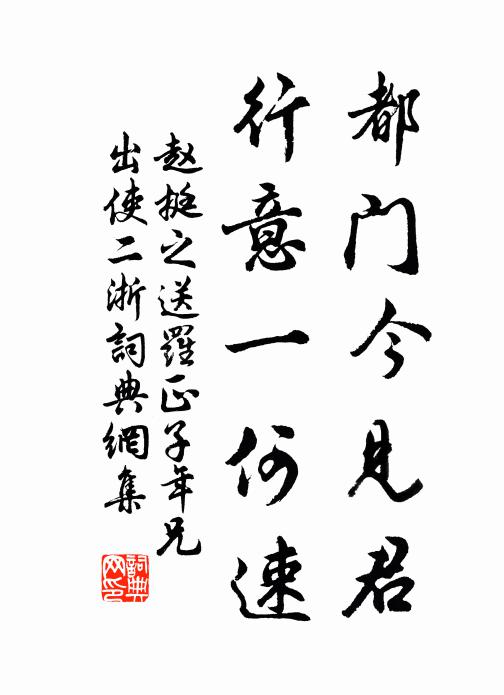 都门今見君
行意一何速
赵挺之送羅正子年兄
出使二浙詞典網集
詞典网印